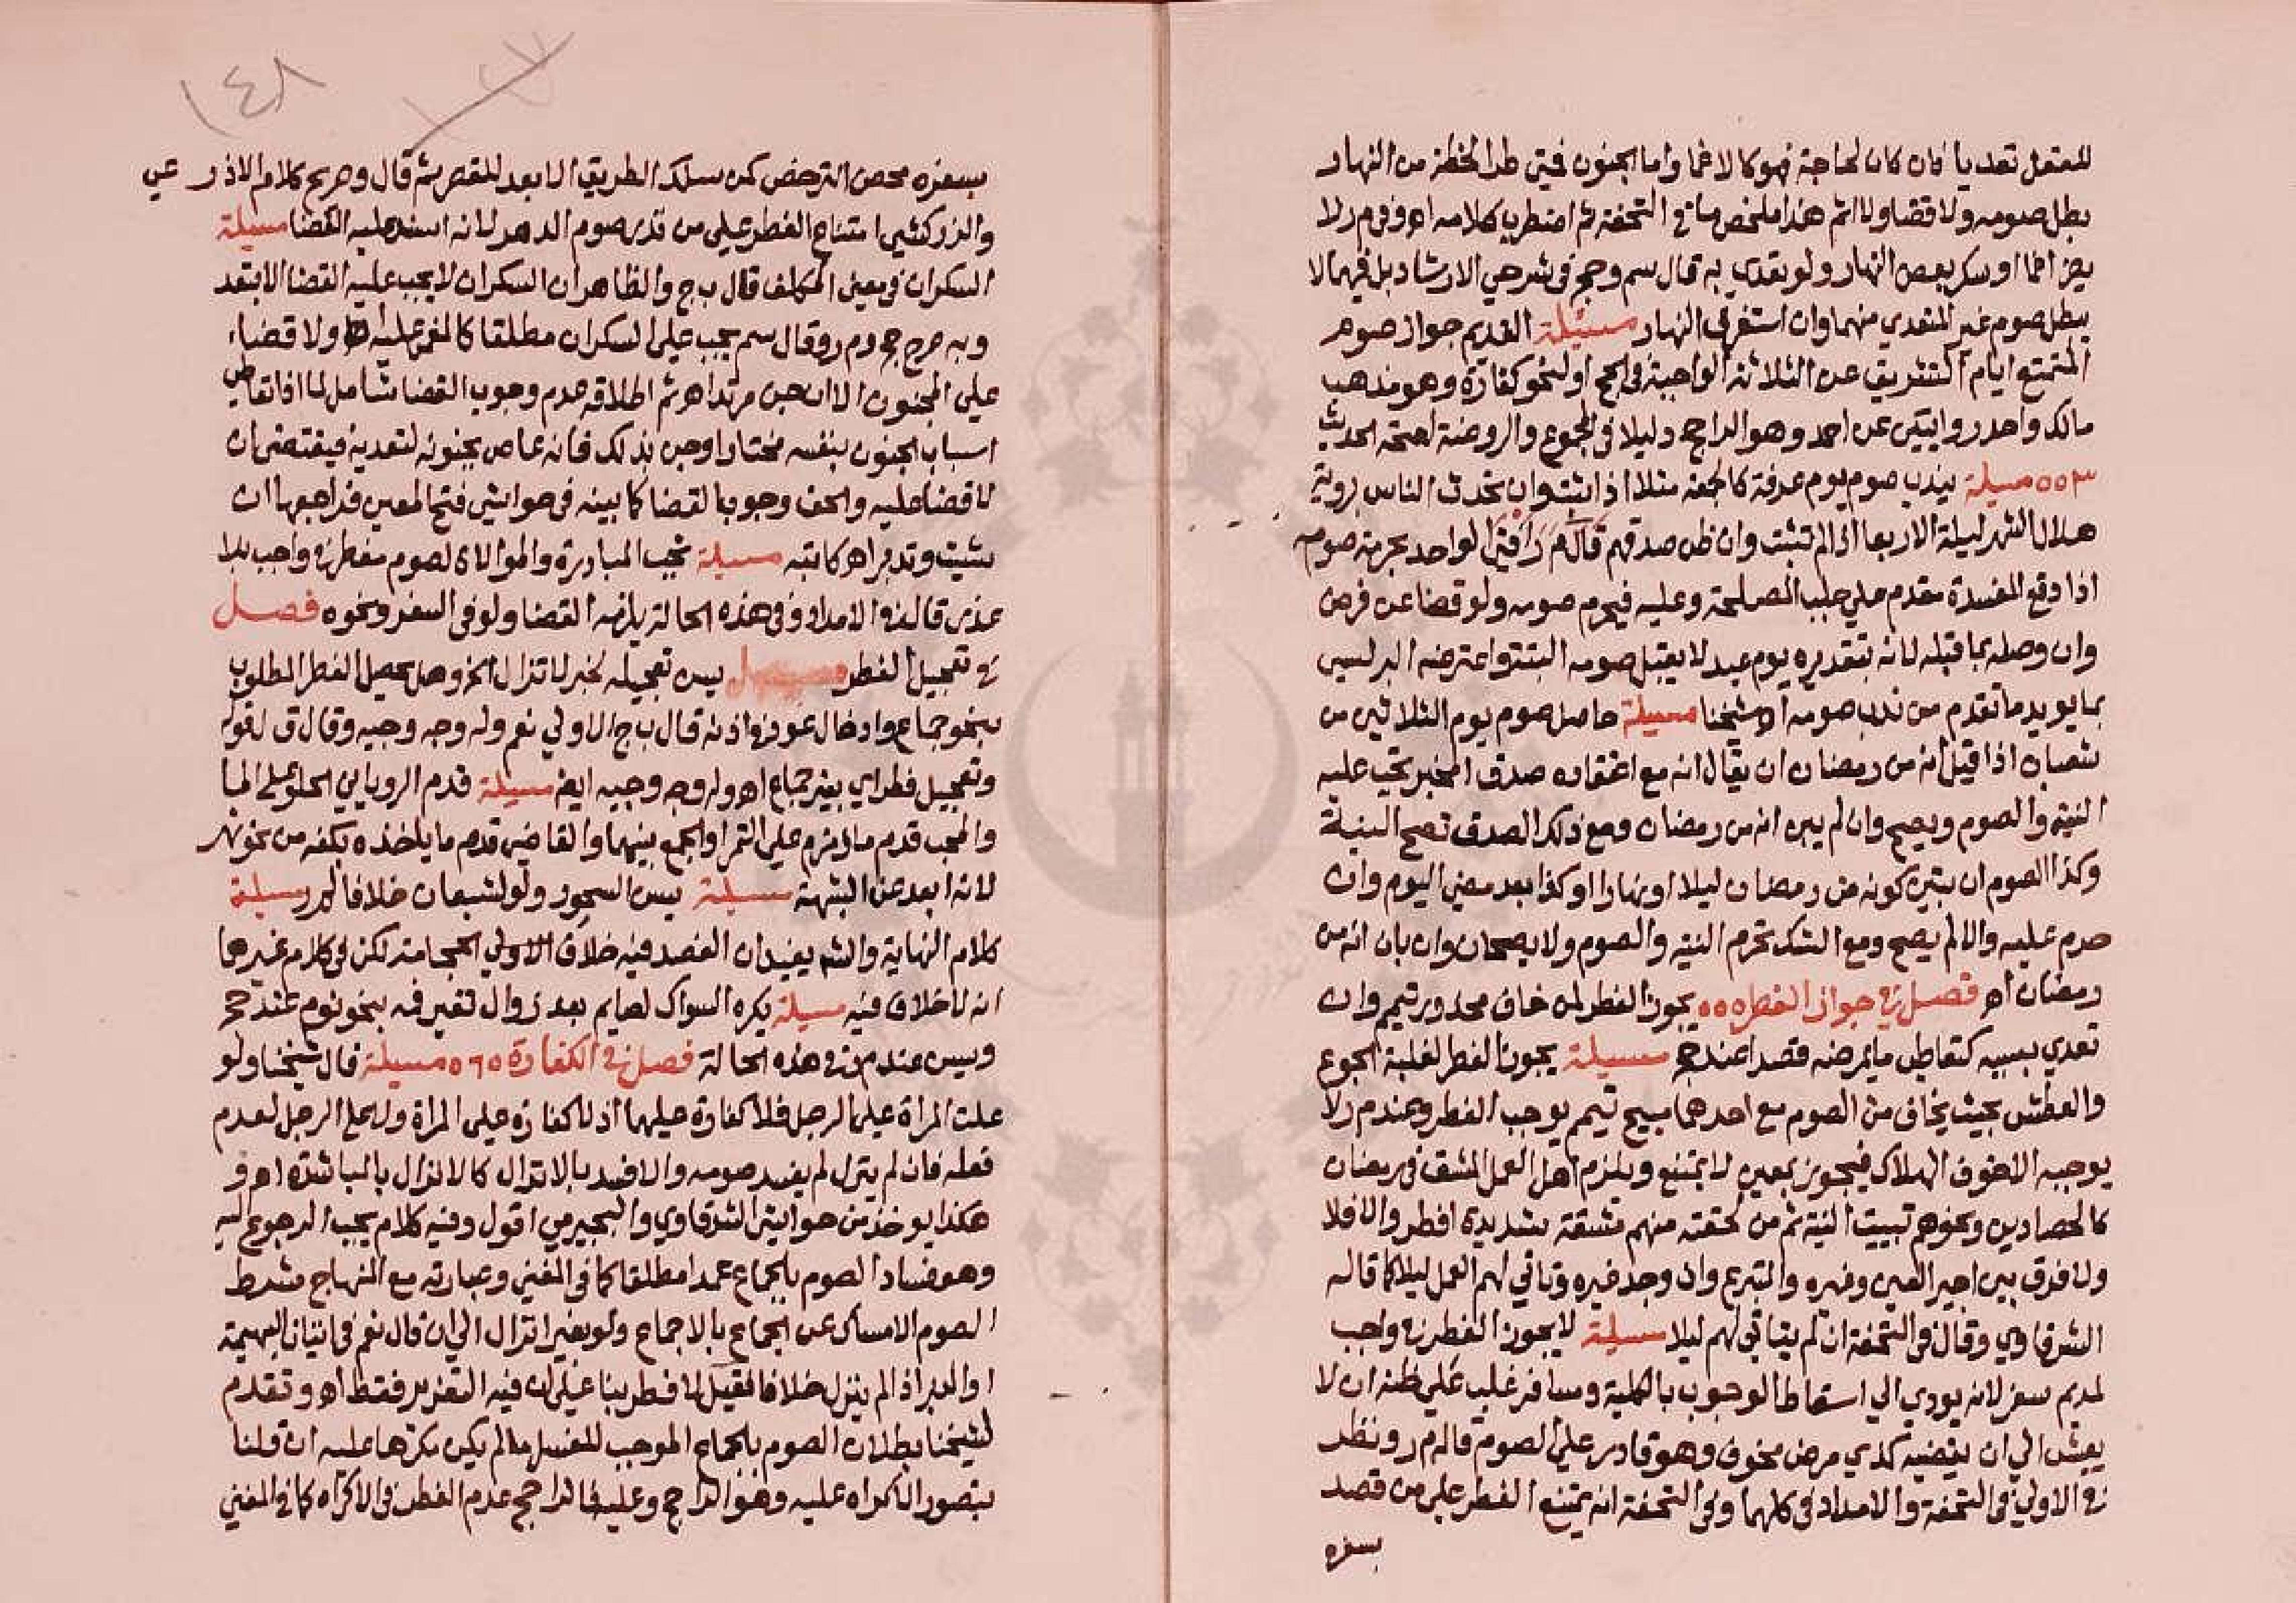 للعقل تعديا فان كان لحاجة فهو كالاغما واما الجنون فمتى طرا لحظة من النهار
بطل صومه ولا قضا ولا اثم هذا ملخص ما في التحفة ثم اضطرب كلامه اه وفي م ر لا
يضر اغما او سكر بعض النهار ولو بعدي به قال سم وحج في شرحي الارشاد بل فيهما لا
يبطل صوم غير المتعدي منهما وان استغرق النهار مسئلة القديم جواز صوم
المتمتع ايام التشريق عن الثلاثة الواجبة في الحج او لنحو كفارة وهو مذهب
مالك واحد روايتين عن احمد وهو الراجح دليلا في المجموع والروضة لصحة الحديث
٥٥٣ مسيلة يندب صوم يوم عرفة كالجمعه مثلا اذا ثبت وان تحدث الناس بروية
هلال الشهر ليلة الاربعا اذا لم تثبت وان ظن صدقهم قاله م ر افتى الواحد بحرمة صومه
اذا وقع المفسدة مقدم على جلب المصلحة وعليه فيحرم صومه ولو قضا عن فرض
وان وصله بما قبله لانه بتقديره يوم عيد لا يقبل صومه البتة واعترضه البرلسي
بما يويد ما تقدم من ندب صومه اه شيخنا مسيلة حاصل صوم يوم الثلاثين من
شعبان اذا قيل انه من رمضان ان يقال انه مع اعتقاده صدق المخبر تجب عليه
النية والصوم ويصح وان لم يبن انه من رمضان ومع ذلك الصدق تصح النية
وكذا الصوم ان تبين كونه من رمضان ليلا او نهارا او كذا بعد مضي اليوم وان
حرم عليه والا لم يصح ومع الشك تحرم النية والصوم ولا يصحان وان بان انه من
رمضان اه فصل في جواز الفطر ٥٥٥ يجوز الفطر لمن خاف محذور تيمم وان
تعدي بسببه كتعاطي ما يمرضه قصدا عند حج مسيلة يجوز الفطر لغلبة الجوع
والعطش بحيث يخاف من الصوم مع احدهما مبيح تيمم يوجب الفطر وعند م ر لا
يوجبه الا خوف الهلاك فيجوز بمعين لا يمتنع ويلزم اهل العمل المشق في رمضان
كالحصادين ونحوهم تبييت النية ثم من لحقته منهم مشقة شديدة افطر والا فلا
ولا فرق بين اجير العين وغيره والمتبرع وان وجد غيره وتاتي لهم العمل ليلا كما قاله
الشرقاوي وقال في التحفة ان لم يتاتى لهم ليلا مسيلة لا يجوز الفطر في واجب
لمديم سفر لانه يودي الي اسقاط الوجوب بالكلية ومسافر غلب على ظنه ان لا
يعيش الي ان يقضيه كذي مرض مخوف وهو قادر على الصوم قاله م ر ونظر
في الاولي في التحفة والامداد في كلهما وفي التحفة انه يمتنع الفطر على من قصد
بسفره
١٤٨
بسفره محض الترخص كمن سلك الطريق الابعد للقصر ثم قال وصريح كلام الاذرعي
والزركشي امتناع الفطر على من نذر صوم الدهر لانه انسد عليه القضا مسيلة
السكران في معنى المكلف قال ب ج والظاهر ان السكران لا يجب عليه القضا الا بتعد
وبه صرح حج وم ر وقال سم يجب على السكران مطلقا كالمغمى عليه اه ولا قضاء
على المجنون الا ان جن مرتدا اه ثم اطلاقه عدم وجوب القضا شامل لما اذا تعاطى
اسباب الجنون بنفسه مختارا وجن بذلك فانه عاص بجنونه لتعديه فيقتضي ان
لا قضا عليه والحق وجوب القضا كما بينه في حواشي فتح المعين فراجعها ان
شيت وتدبر اه كاتبه مسيلة تجب المبادرة والموالاة لصوم مفطر في واجب بلا
عذر قاله في الامداد وفي هذه الحالة يلزمه القضا ولو في السفر ونحوه فصل
في تعجيل الفطر يسن تعجيله لخبر لا تزال الخ وهل يحصل الفطر المطلوب
بنحو جماع وادخال عود في اذنه قال ب ج الاولي نعم وله وجه وجيه وقال ق ل قوله
وتعجيل فطر اي بغير جماع اه وله وجه وجيه ايض مسيلة قدم الروياني الحلوى على الما
والمحب قدم ما زمزم على التمر او الجمع بينهما والقاضي قدم ما ياخذه بكفه من نحو نهر
لانه ابعد عن الشبهة مسيلة يسن السحور ولو لشبعان خلافا لم ر مسيلة
كلام النهاية والشم يفيد ان الفصد فيه خلاف الاولي الحجامة لكن في كلام غيرها
انه لا خلاف فيه مسيلة يكره السواك لصايم بعد زوال تغير فه بنحو نوم عند حج
ويسن عند م ر في هذه الحالة فصل في الكفارة ٥٦٥ مسيلة قال شيخنا ولو
علت المراة على الرجل فلا كفارة عليهما اذ لا كفارة على المراة ولا على الرجل لعدم
فعله فان لم ينزل لم يفسد صومه والا فسد بالانزال كالانزال بالمباشرة اه و
هكذا يوخذ من حواشي الشرقاوي والبجيرمي اقول وفيه كلام يجب الرجوع اليه
وهو فساد الصوم بالجماع عمدا مطلقا كما في المغني وعبارته مع المنهاج شرط
الصوم الامساك عن الجماع بالاجماع ولو بغير انزال الي ان قال نعم في اتيان البهيمة
او الدبر اذا لم ينزل خلافا فقيل لا فطر بنا على ان فيه التعزير فقط اه وتقدم
لشيخنا بطلان الصوم بالجماع الموجب للغسل ما لم يكن مكرها عليه ان قلنا
بتصور الاكراه عليه وهو الراجح وعليه فالراجح عدم الفطر في الاكراه كما في المغني